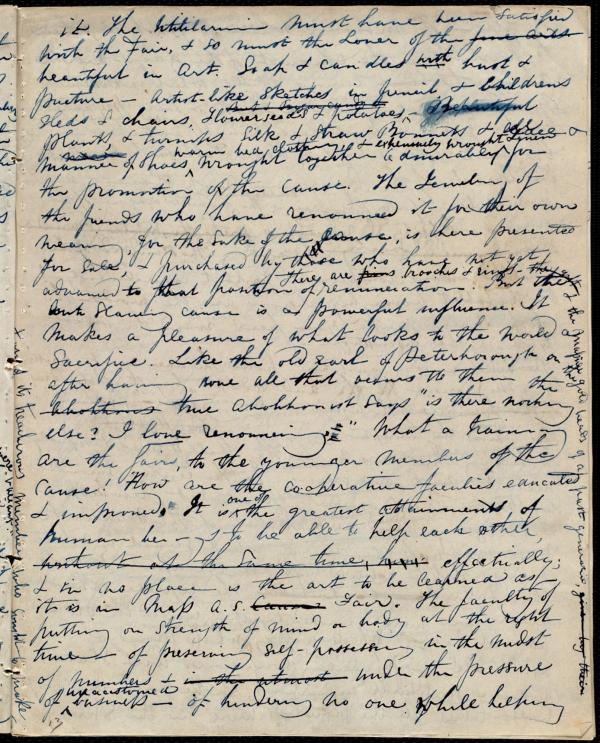 it. The Utilitarian must have been satisfied
with the Fair, & so must the Lover of the fine arts
beautiful in Art. Soap & candles with bust &
picture – Artist-like sketches in pencil & childrens
sleds & chairs, Flowerseeds & potatoes – Beautiful
plants, & turnips Silk & Straw Bonnets & all
manner of shoes wrought together admirably for
warm bed clothing & extremely wrought
the promotion of the Cause. The Jewelry of
the friends who have renounced it for their own
wearing, for the sake of the Cause, is here presented
for sale, & purchased by those who have not yet
There are pins brooches & rings
advanced to that position of renunciation. But the
Anti Slavery cause is a powerful influence. It
makes a pleasure of what looks to the world a
sacrifice. Like the old Earl of Peterborough on
after having done all that occurs to them the
Abolitionist true Abolitionist says "is there nothing
else? I love renouncing." What a training
are the Fairs, to the younger members of the
Cause! How are the co-operative faculties educated
& improved. It is one of the greatest attainments of
human be-ings to be able to help each other,
without at the same time, effectually;
& in no place is the art to be learned as
it is in Mass A.S. Cause Fair. The faculty of
putting on strength of mind or body at the right
time – of preserving self-possession in the midst
of numbers & in the utmost under the pressure
of unaccustomed business – of hindering no one while helping